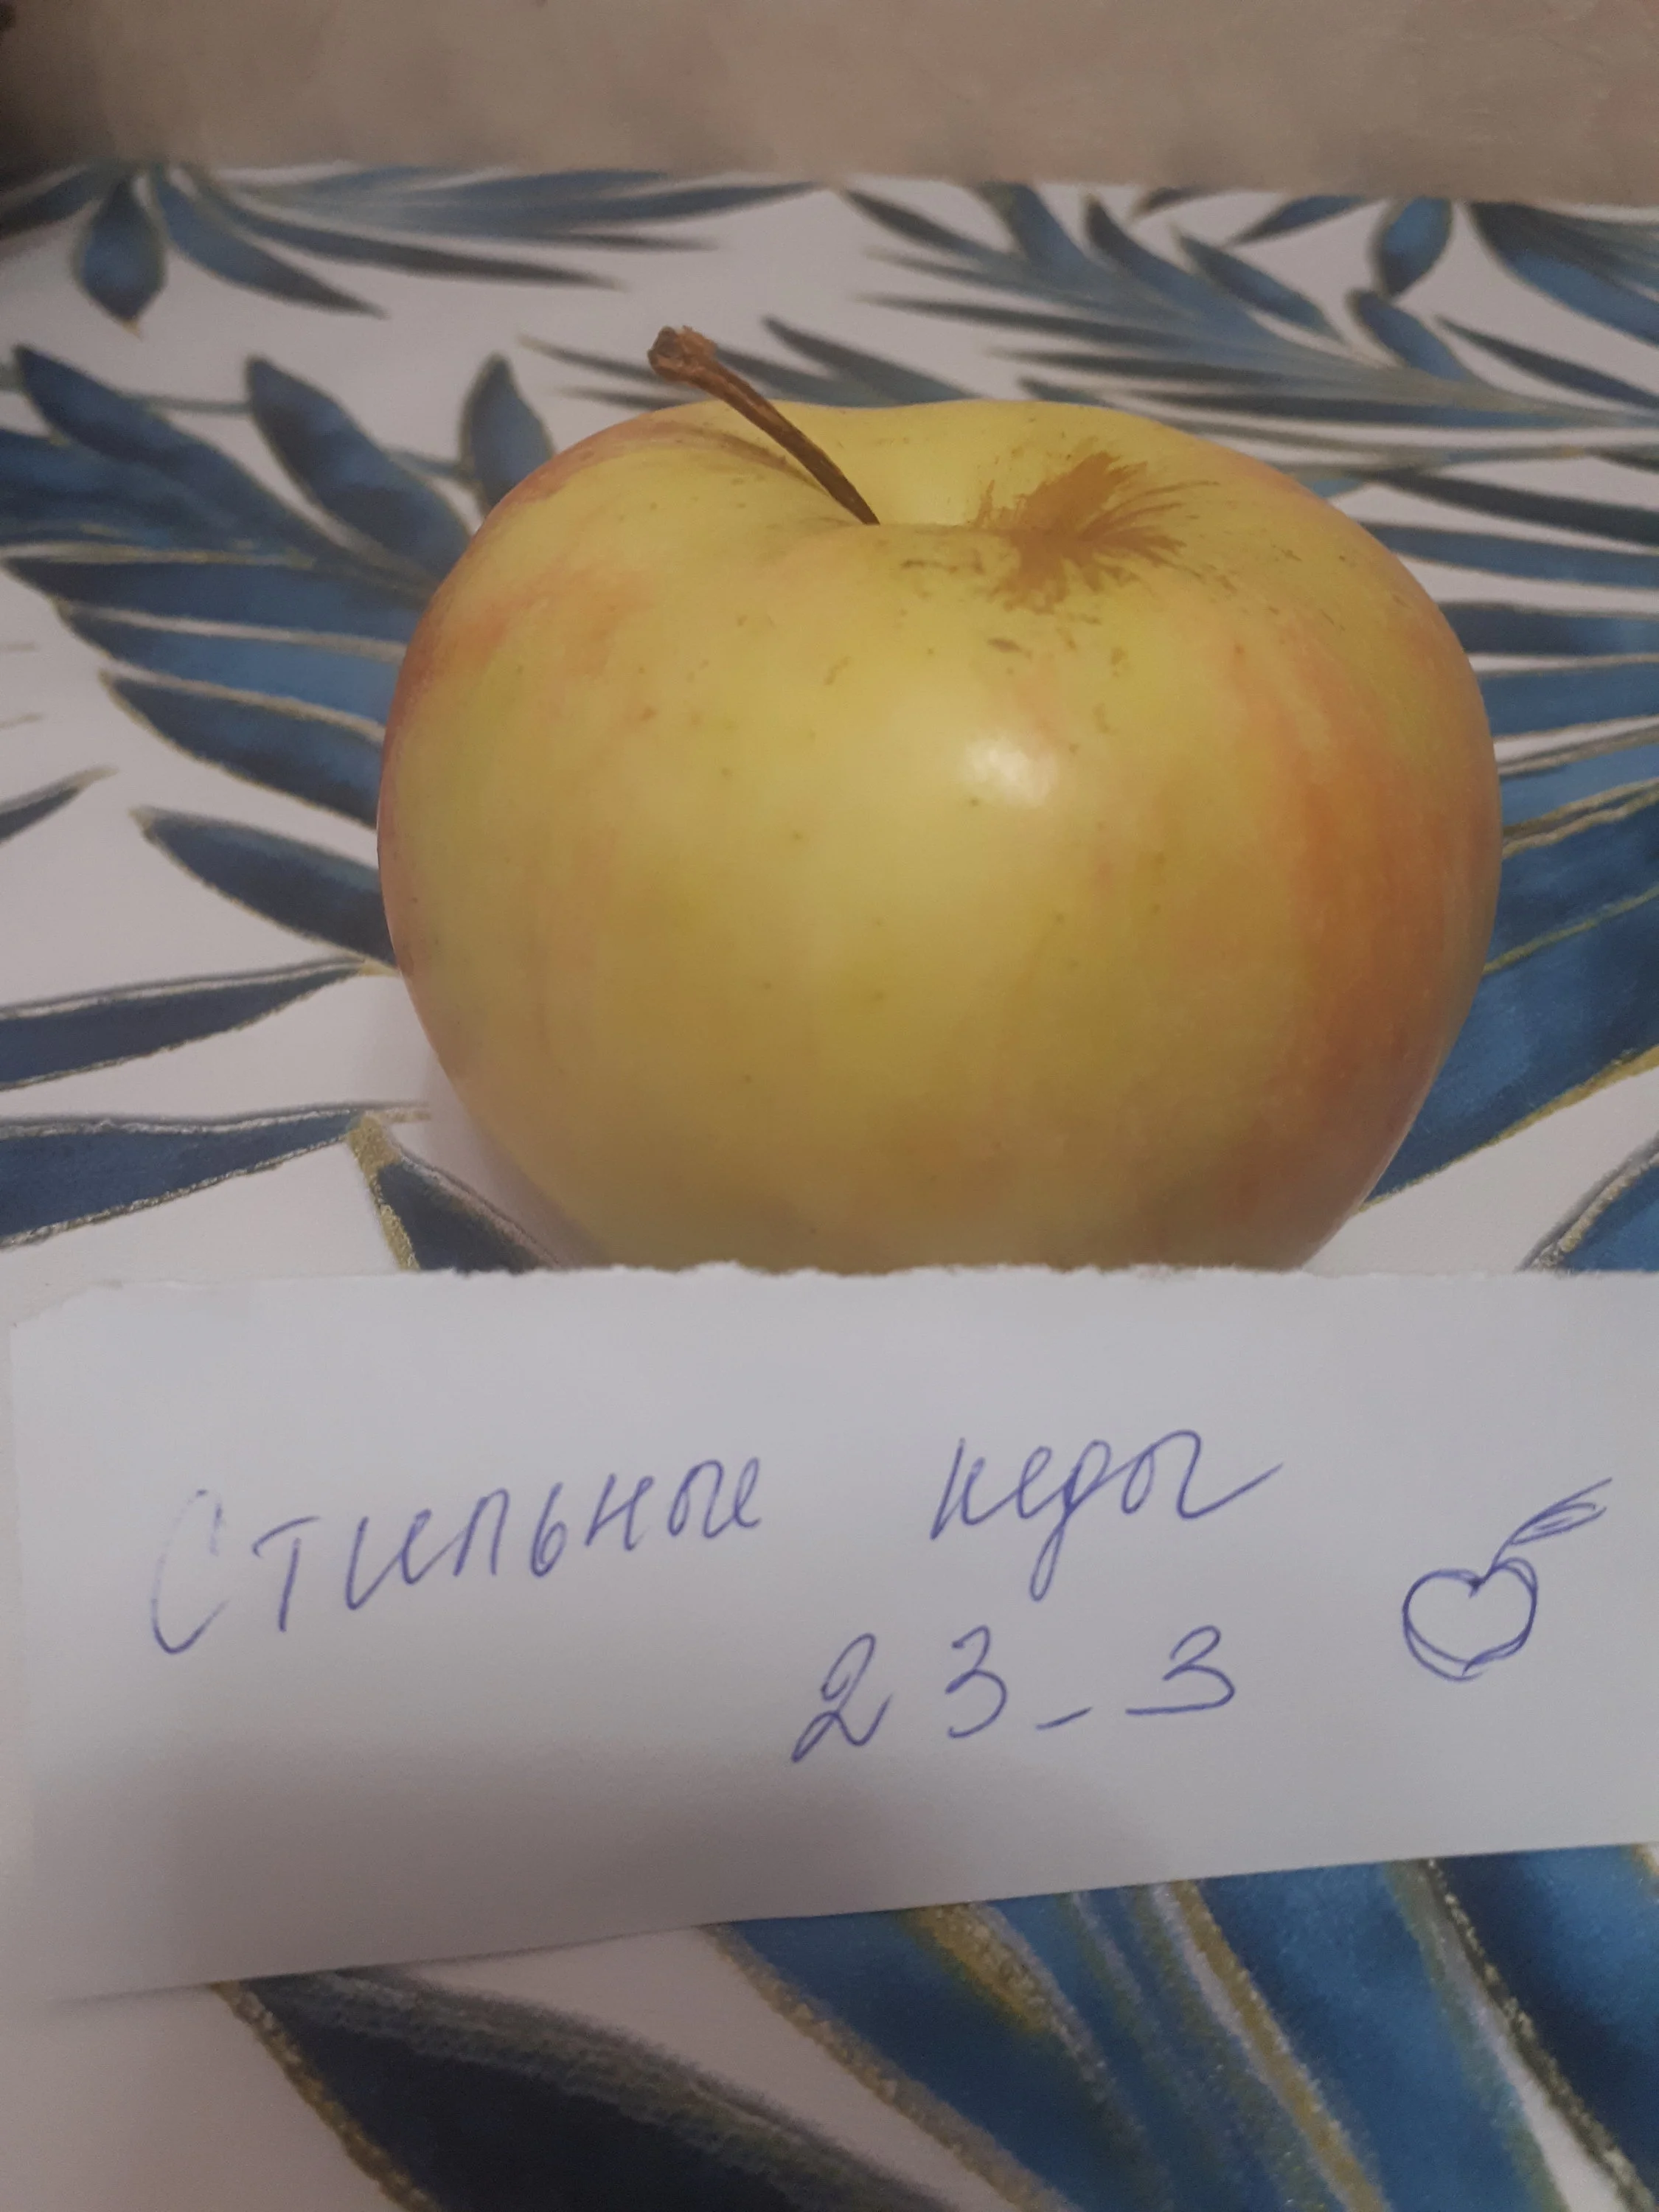 Стильные кеды
23_3